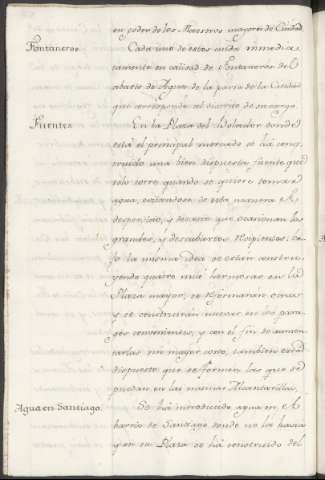 en poder de los Maestros mayores de Ciudad
Fontaneros.
Cada uno de estos cuida immedia-
tamente en calidad de Fontaneros del
abasto de Agua de la parte de la Ciudad
que corresponde al districto de su cargo.
Fuentes
En la Plaza del Bolador donde
está el principal mercado se ha cons-
truido una bien dispuesta fuente que
solo corre quando se quiere tomar
agua, evitandose de esta manera el
desperdicio, y deceso que ocasionan las
grandes, y descubiertos recipientes: ba-
jo la misma idea se están constru-
yendo quatro muy hermosas en la
Plaza mayor, se reformarán otras
y se construirán nuevas en los para-
ges convenientes, y con el fin de aumen-
tarlas sin mayor costo, tambien está
dispuesto que se formen las que se
puedan en las mismas Alcantarillas.
Agua en Santiago.
Se há introducido agua en el
barrio de Santiago donde no la havia
y en su Plaza se há construido del